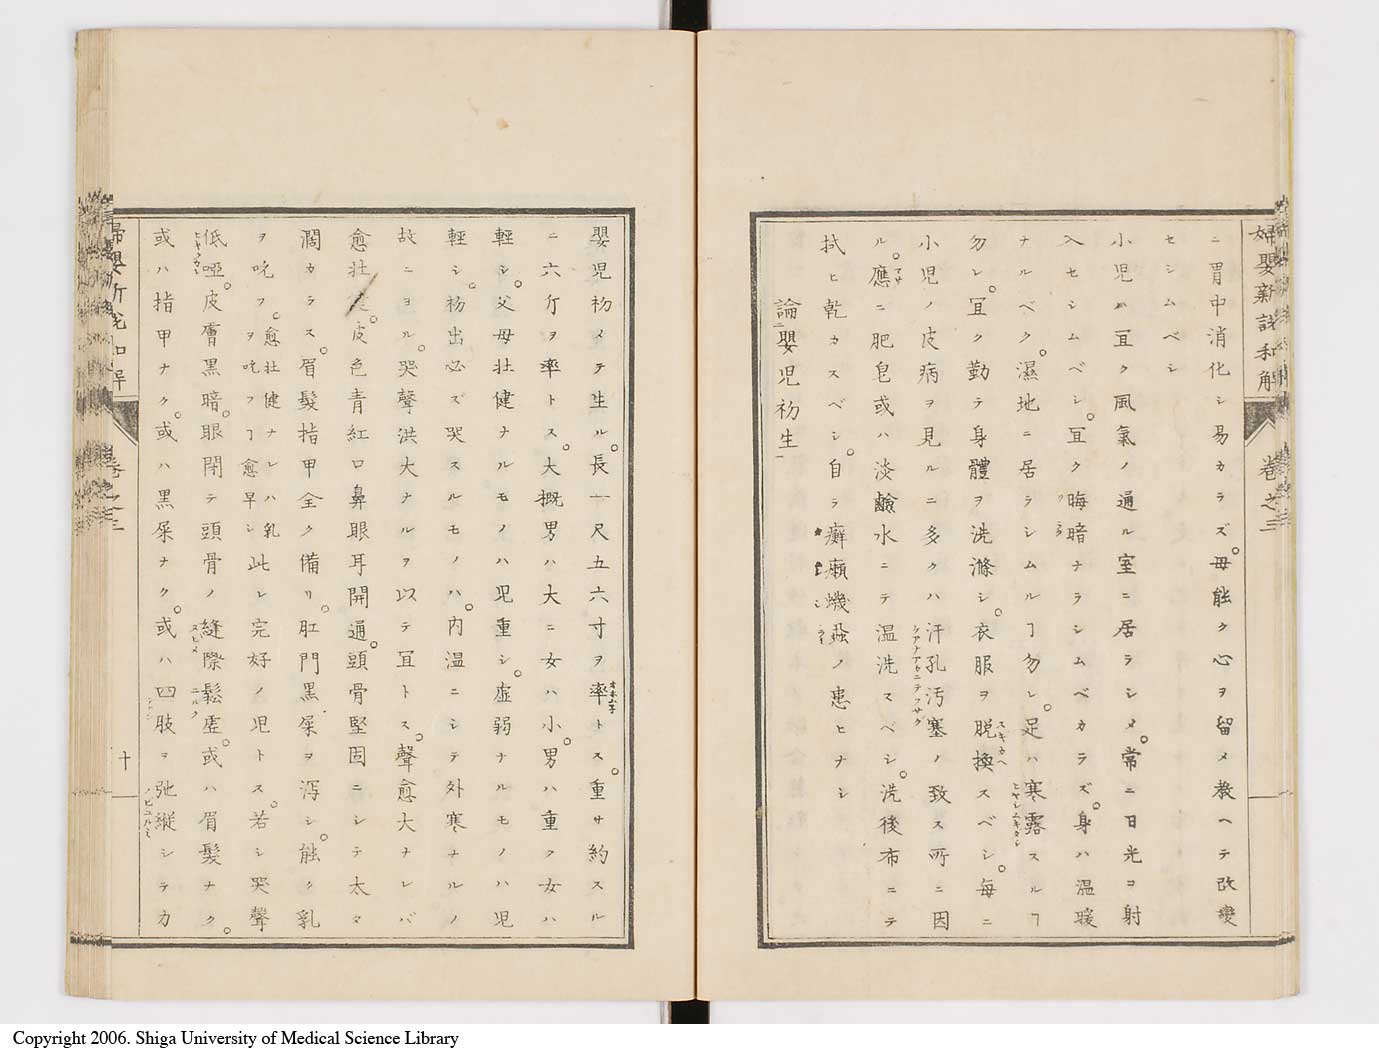 婦嬰新説和解 巻之三
ニ胃中消化シ易カラズ。母能ク心ヲ留メ教ヘテ改變
セシムベシ
小児ハ宜ク風氣ノ通ル室ニ居ラシメ。常ニ日光コ射
入セシムベシ。宜ク晦暗ナラシムベカラズ。身ハ温暖
ナルベク。濕地ニ居ラシムルヿ勿レ。足ハ寒露スルヿ
勿レ。宜ク勤テ身體ヲ洗滌シ。衣服ヲ脱換スベシ。毎ニ
小児ノ皮病ヲ見ルニ多クハ汗孔汚塞ノ致ス所ニ因
ル。應ニ肥皂或ハ淡鹼水ニテ温洗スベシ。洗後布ニテ
拭ヒ乾カスベシ。自ラ癬癩蟣蝨ノ患ヒナシ
論嬰児初生
嬰児初メテ生ル。長一尺五六寸ヲ率トス。重サ約スル
ニ六斤ヲ率トス。大概男ハ大ニ女ハ小。男ハ重ク女ハ
輕シ。父母壮健ナルモノハ児重シ。虚弱ナルモノハ児
輕シ。初出必ズ哭スルモノハ。内温ニシテ外寒ナルノ
故ニヨル。哭聲洪大ナルヲ以テ宜トス。聲愈大ナレバ
愈壮健。皮色青紅口鼻眼耳開通。頭骨堅固ニシテ太タ
濶カラス。眉髮指甲全ク備リ。肛門黒屎ヲ瀉シ。能ク乳
ヲ吮フ。愈壮健ナレハ乳ヲ吮フヿ愈早シ此レ完好ノ児トス。若シ哭聲
低啞。皮膚黒暗。眼閉テ頭骨ノ縫際鬆虚。或ハ眉髮ナク。
或ハ指甲ナク。或ハ黒屎ナク。或ハ四肢ヲ弛縦シテカ
巻之三 十
Copyright 2006. Shiga University of Medical Science Library